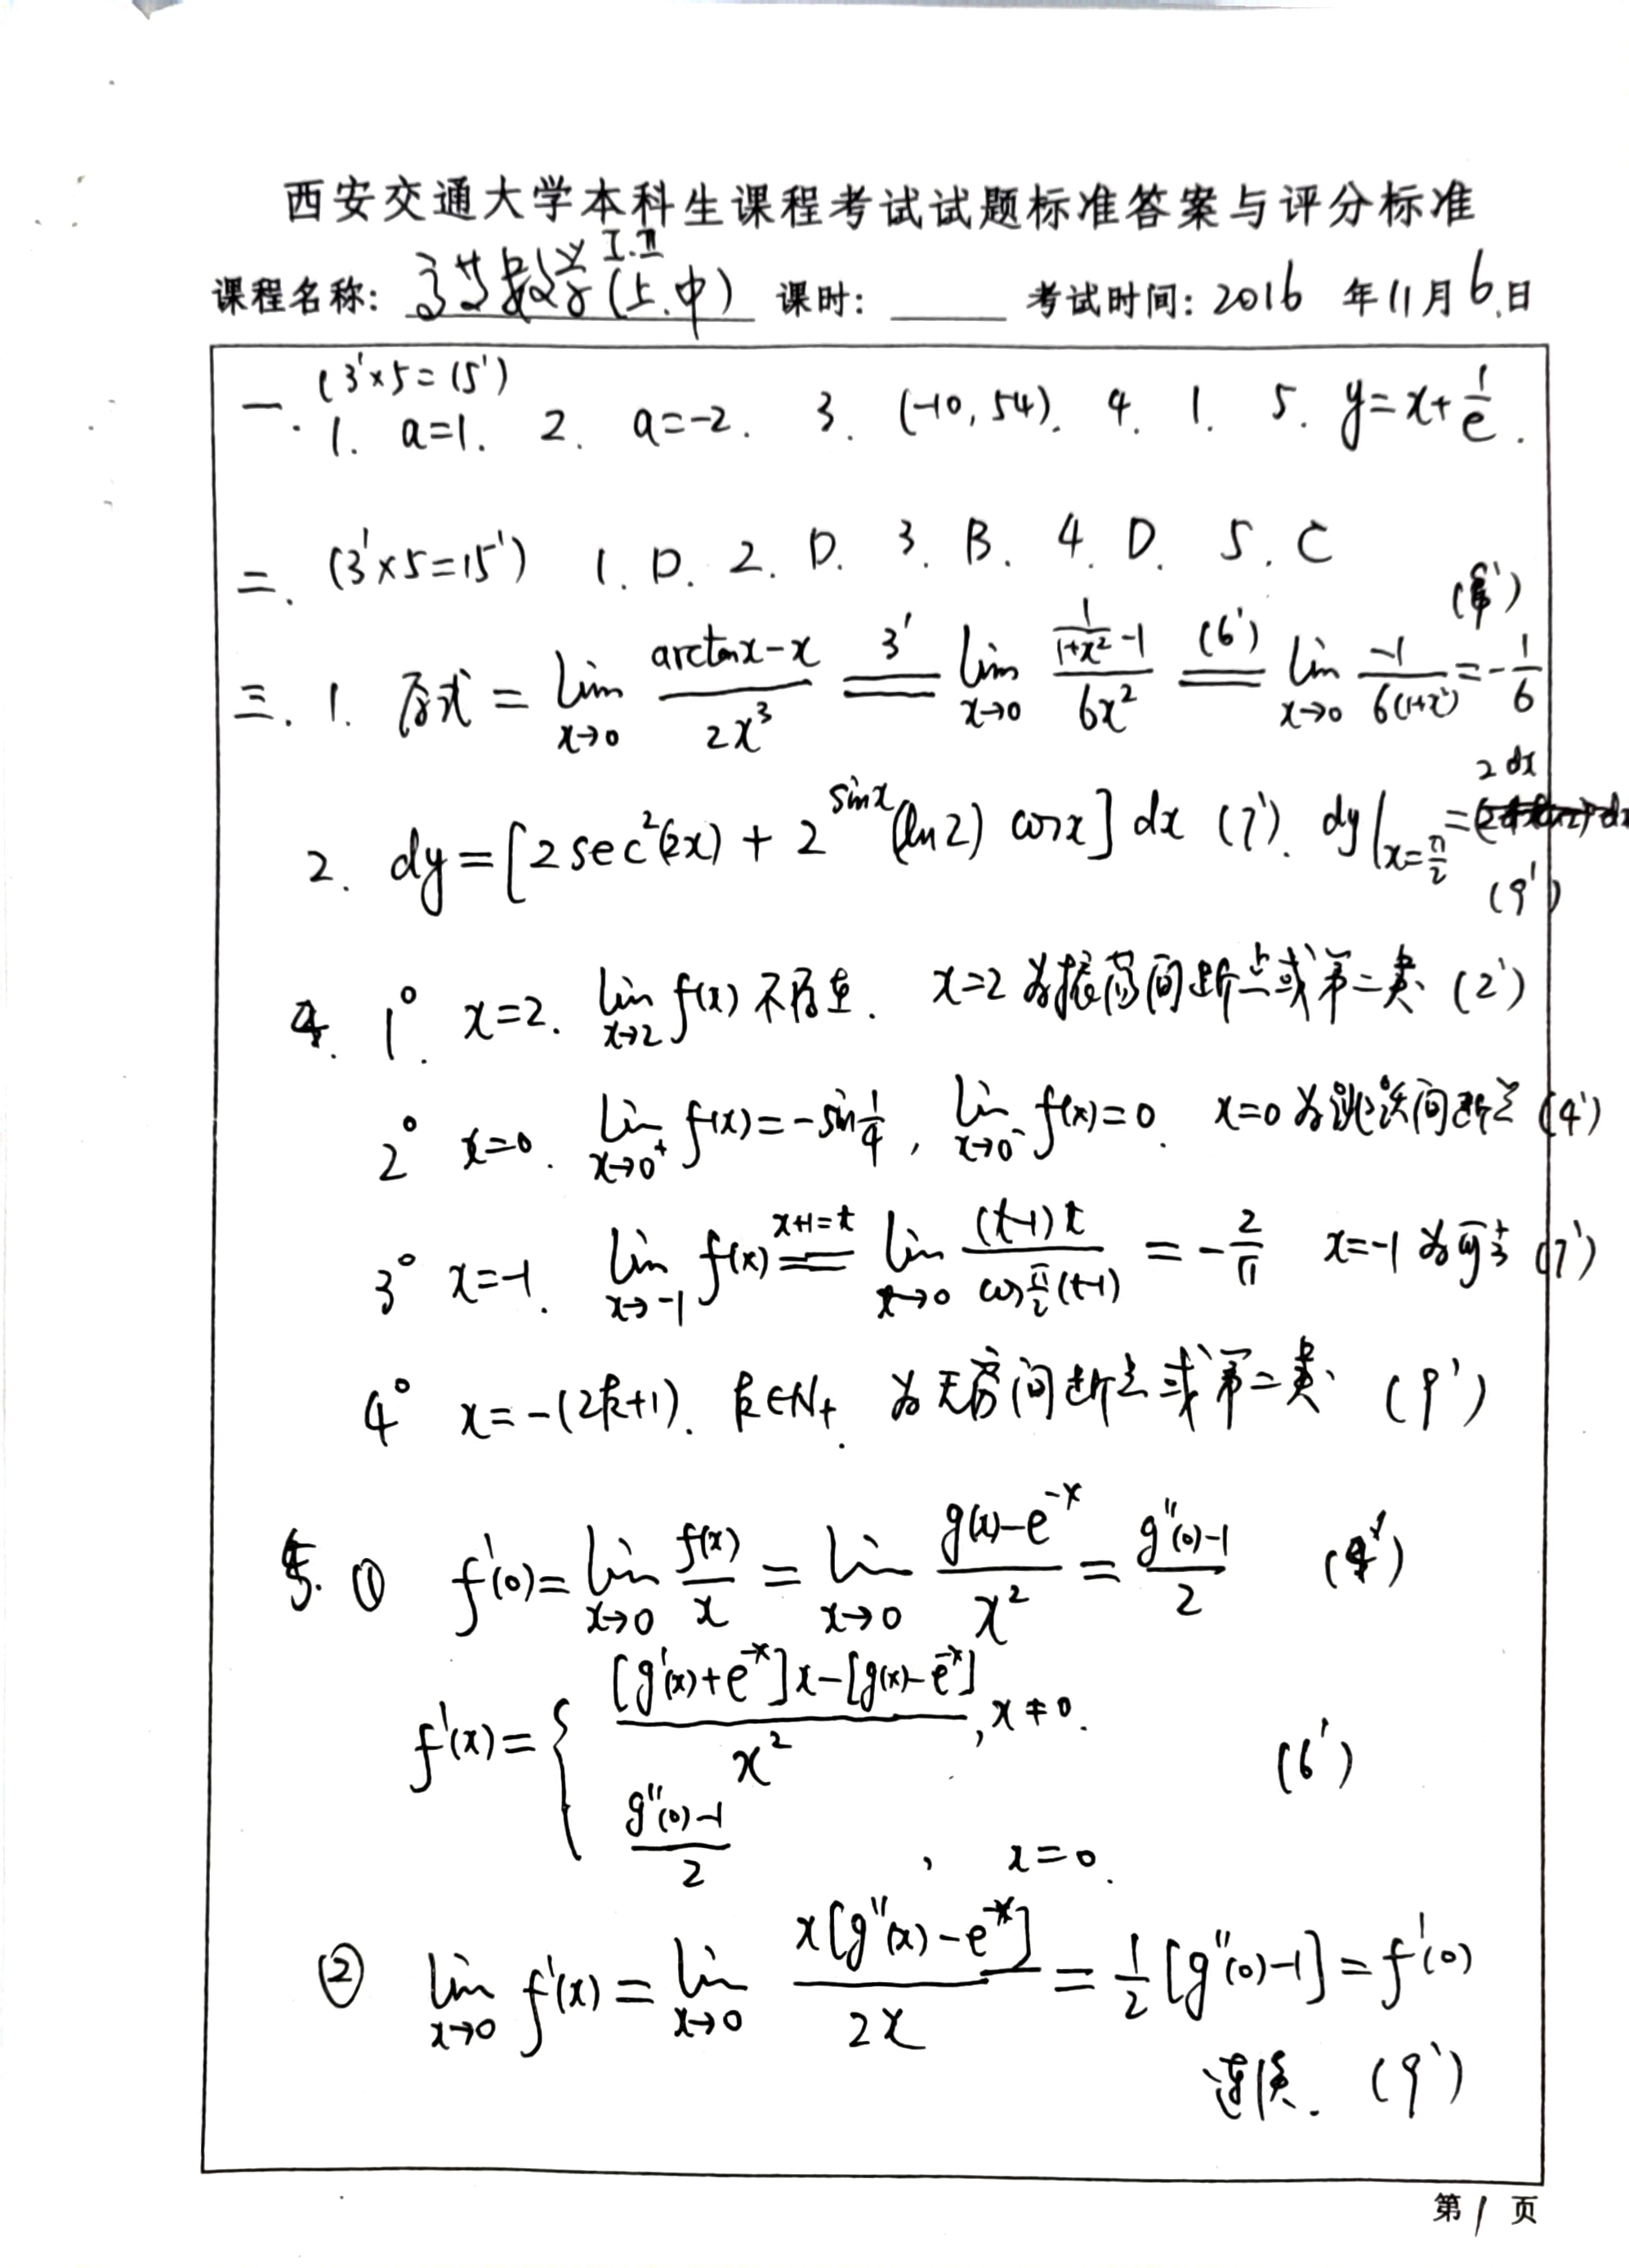 西安交通大学本科生课程考试试题标准答案与评分标准
课程名称: 高等数学 I.II (上.中) 课时: 考试时间: 2016 年 11 月 6 日
一. (3'×5=15')
1. a=1. 2. a=-2. 3. (-10, 54). 4. 1. 5. y=x+1/e.
二. (3'×5=15') 1. D. 2. D. 3. B. 4. D. 5. C
三. 1. 原式 = lim_{x→0} (arctan x - x)/(2x³) =(3')= lim_{x→0} (1/(1+x²) - 1)/(6x²) =(6')= lim_{x→0} -1/(6(1+x²)) = -1/6
2. dy=[2sec²(2x) + 2^{sin x}(ln 2) cos x] dx (7'). dy|_{x=π/2} = 2dx (9')
4. 1°. x=2. lim_{x→2} f(x) 不存在. x=2 为振荡间断点或第二类 (2')
2° x=0. lim_{x→0⁺} f(x) = -sin 1/4, lim_{x→0⁻} f(x)=0. x=0 为跳跃间断点 (4')
3° x=-1. lim_{x→-1} f(x) =(x+1=t)= lim_{t→0} (t-1)t/(cos π/2 (t-1)) = -2/π x=-1 为可去 (7')
4° x=-(2k+1). k∈N₊. 为无穷间断点或第二类 (9')
5. ① f'(0)= lim_{x→0} f(x)/x = lim_{x→0} (g(x)-e^{-x})/x² = (g''(0)-1)/2 (4')
f'(x)= { ([g'(x)+e^{-x}]x-[g(x)-e^{-x}])/x², x≠0.
(6')
(g''(0)-1)/2, x=0.
② lim_{x→0} f'(x) = lim_{x→0} x[g''(x)-e^{-x}]/(2x) = 1/2 [g''(0)-1] = f'(0)
连续. (9')
第 1 页